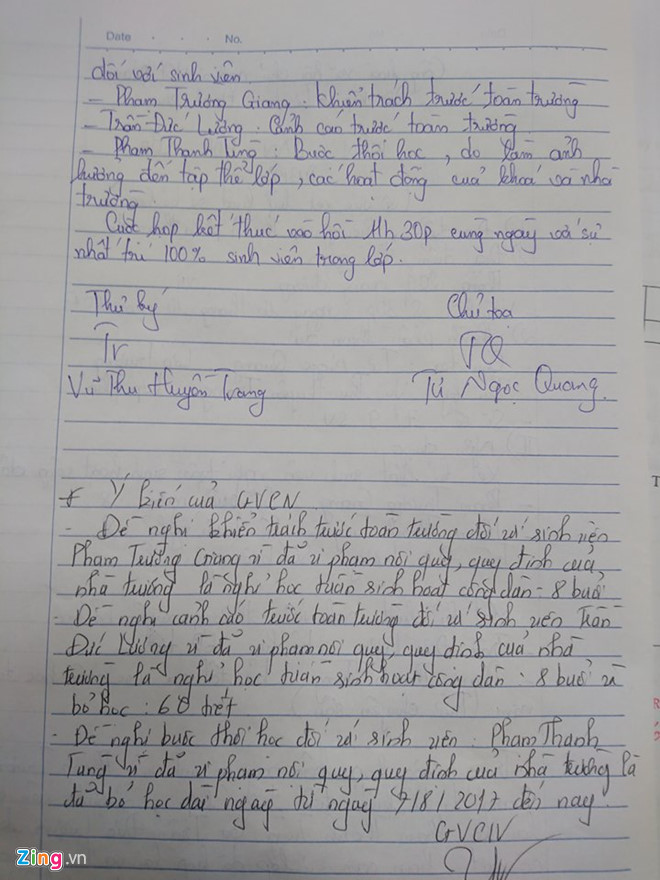 Date . . . No.
đối với sinh viên
– Phạm Trường Giang : khiển trách trước toàn trường
– Trần Đức Lương : Cảnh cáo trước toàn trường
– Phạm Thanh Tùng : Buộc thôi học, do làm ảnh
hưởng đến tập thể lớp, các hoạt động của khoa và nhà
trường.
Cuộc họp kết thúc vào hồi 11h30p cùng ngày với sự
nhất trí 100% sinh viên trong lớp.
Thư ký Chủ tọa
Tr TQ
Vũ Thu Huyền Trang Từ Ngọc Quang.
* Ý kiến của GVCN
- Đề nghị khiển trách trước toàn trường đối với sinh viên
Phạm Trường Giang vì đã vi phạm nội quy, quy định của
nhà trường là nghỉ học tuần sinh hoạt công dân - 8 buổi
- Đề nghị cảnh cáo trước toàn trường đối với sinh viên Trần
Đức Lương vì đã vi phạm nội quy, quy định của nhà
trường là nghỉ học tuần sinh hoạt công dân : 8 buổi và
bỏ học : 68 tiết
- Đề nghị buộc thôi học đối với sinh viên : Phạm Thanh
Tùng vì đã vi phạm nội quy, quy định của nhà trường là
đã bỏ học dài ngày từ ngày 7/8/2017 đến nay.
GVCN
Zing.vn